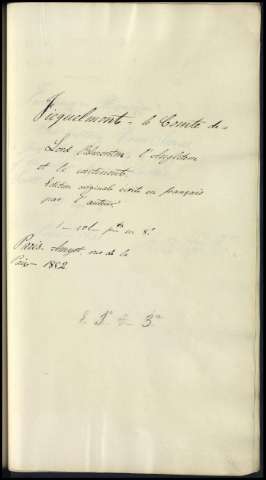 Ficquelmont - le Comte de -
Lord Palmerston, l'Angleterre
et le continent,
Edition originale écrite en français
par l'auteur
1 - vol. in 8.°
Paris. Amyot, rue de la
Paix - 1852
E 1ª 3ª